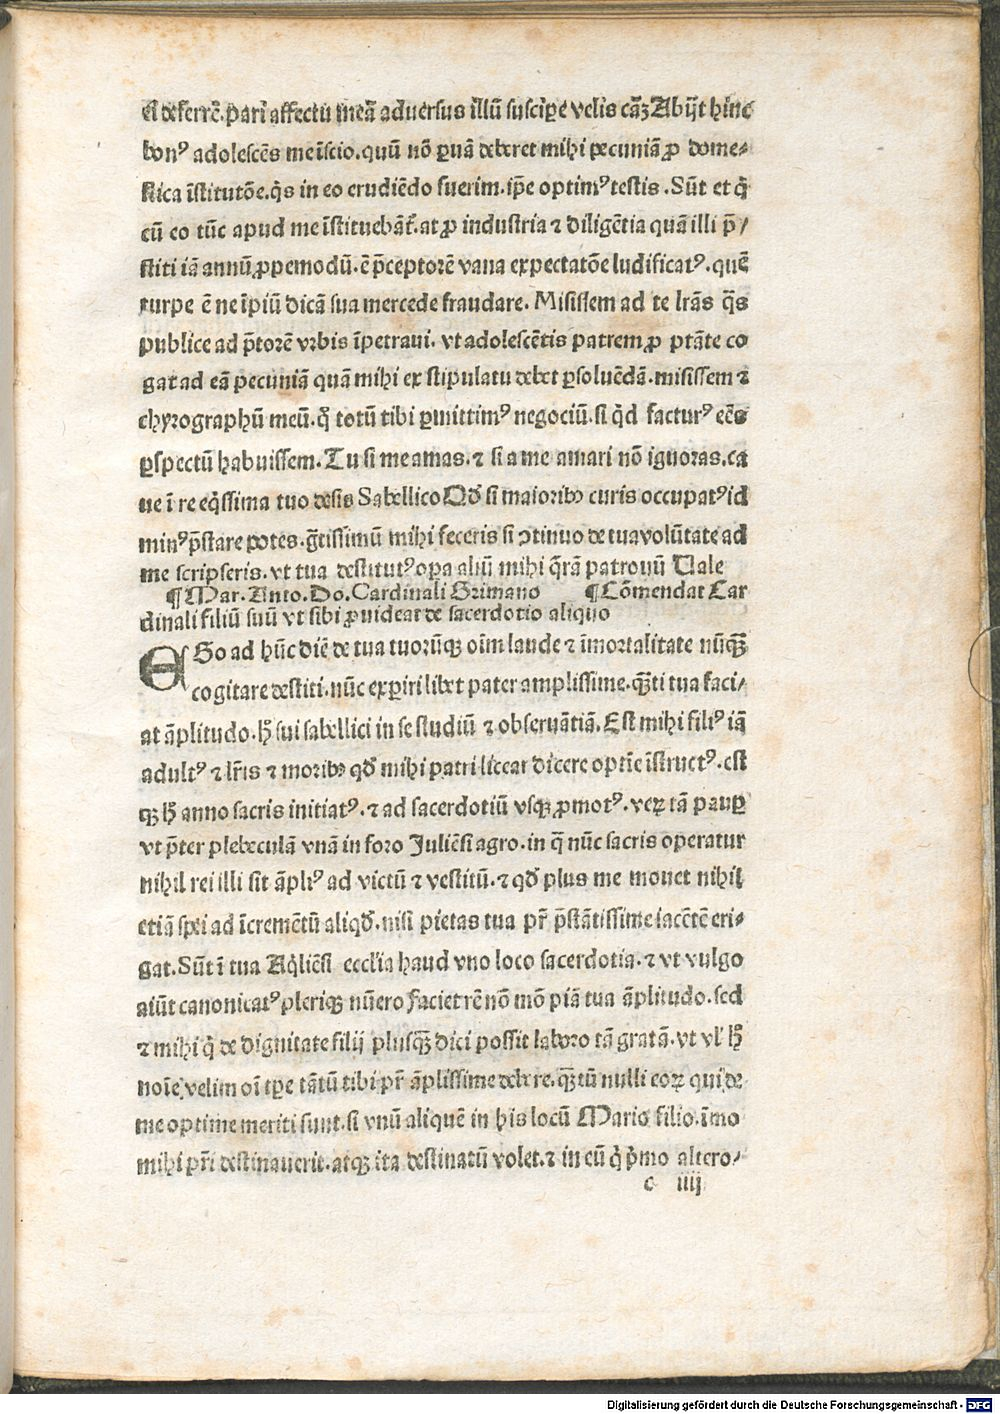 el deferrē. pari affectu meā adversus illū suscipe velis cāꝫ Abijt hinc
bonꝰ adolescēs me īscio. quū nō ꝑuā deberet mihi pecuniā ꝓ dome⸗
stica īstitutōe. q̄s in eo erudiēdo fuerim. ip̄e optimꝰ testis. Sūt et q̇
cū eo tūc apud me īstituebāt᷑. at ꝓ industria ⁊ diligētia quā illi p̄/
stiti iā annū ꝓpemodū. ē p̄ceptorē vana expectatōe ludificatꝰ. quē
turpe ē ne īpiū dicā sua mercede fraudare. Misissem ad te lr̄as q̄s
publice ad p̄torē vrbis īpetraui. vt adolescētis patrem ꝓ ptāte co
gat ad eā pecuniā quā mihi ex stipulatu debet ꝑsoluēdā. misissem ⁊
chyrographū meū. q̊ totū tibi ꝑmittimꝰ negociū. si q̇d facturꝰ eēs
ꝑspectū habuissem. Tu si me amas. ⁊ si a me amari nō ignoras. ca
ue ī re eq̇ssima tuo desis Sabellico Qd̕ si maioribꝰ curis occupatꝰ id
minꝰ p̄stare potes. gr̄tissimū mihi feceris si ↄtinuo de tua volūtate ad
me scripseris. vt tua destitutꝰ opa aliū mihi q̄rā patronū Uale
¶ Mar. Anto. Do. Cardinali Grimano ¶ Cōmendat Car
dinali filiū suū vt sibi ꝓuideat de sacerdotio aliquo
EGo ad hūc diē de tua tuorūqꝫ oīm laude ⁊ īmortalitate nūqꝫ̄
cogitare destiti. nūc experiri libet pater amplissime. qꝫ̄ti tua faci/
at āplitudo. h̕ sui sabellici in se studiū ⁊ obseruātiā. Est mihi filiꝰ iā
adultꝰ ⁊ lr̄is ⁊ moribꝰ qd̕ mihi patri liceat dicere optīe īstructꝰ. est
qꝫ h̕ anno sacris initiatꝰ. ⁊ ad sacerdotiū vsqꝫ ꝓmotꝰ. veꝝ tā pauꝑ
vt p̄ter plebeculā vnā in foro Juliēsi agro. in q̄ nūc sacris operatur
nihil rei illi sit āpliꝰ ad victū ⁊ vestitū. ⁊ qd̕ plus me mouet nihil
etiā spei ad īcremētū aliqd̕. nisi pietas tua pr̄ p̄stātissime iacētē eri⸗
gat. Sūt ī tua Aq̇liēsi ecclīa haud vno loco sacerdotia. ⁊ vt vulgo
aiūt canonicatꝰ pleriqꝫ nūero faciet rē nō mō piā tua āplitudo. sed
⁊ mihi q̇ de dignitate filij plusqꝫ̄ dici possit laboro tā gratā. vt vl̕ h̊
noīe velim oī tꝑe tātū tibi pr̄ āplissime debere. qꝫ̄tū nulli eoꝝ qui de
me optime meriti sunt. si vnū aliquē in his locū Mario filio. īmo
mihi pr̄i destinauerit. atqꝫ ita destinatū volet. ⁊ in eū q̇ p̄mo altero/
c iiij
Digitalisierung gefördert durch die Deutsche Forschungsgemeinschaft - DFG